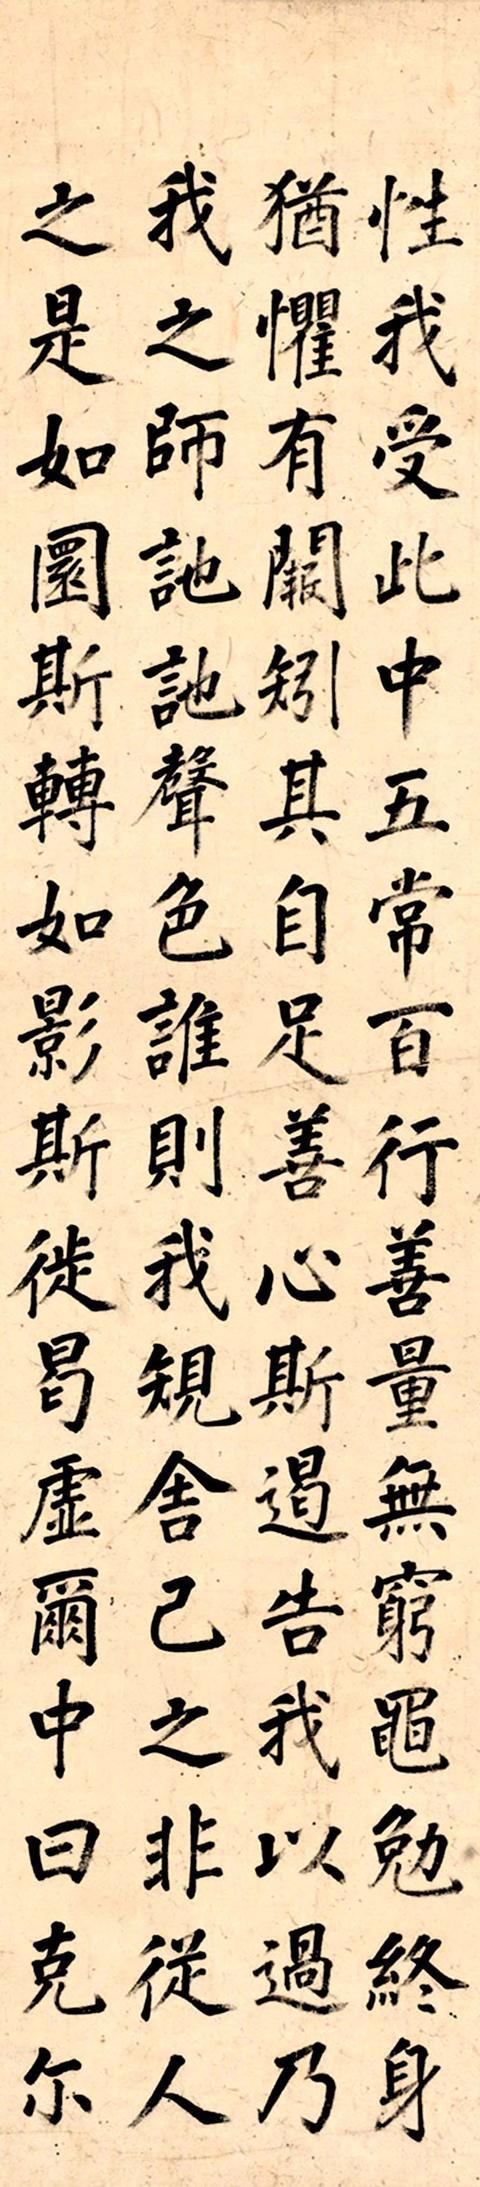 性我受此中五常百行善量無窮黽勉終身
猶懼有闕矧其自足善心斯遏告我以過乃
我之師訑訑聲色誰則我規舍己之非從人
之是如圜斯轉如影斯徙曷虛爾中曰克尔